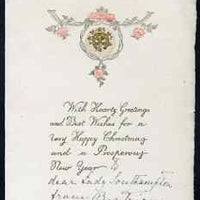 With Hearty Greetings
and Best Wishes for a
very Happy Christmas
and a Prosperous
New Year to
dear Lady Southampton
from